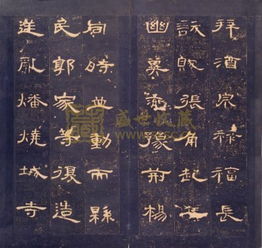 拜酒泉祿福長
訞賊張角起兵
幽冀兗豫荊楊
同時並動而縣
民郭家等復造
逆亂燔燒城寺
盛世收藏